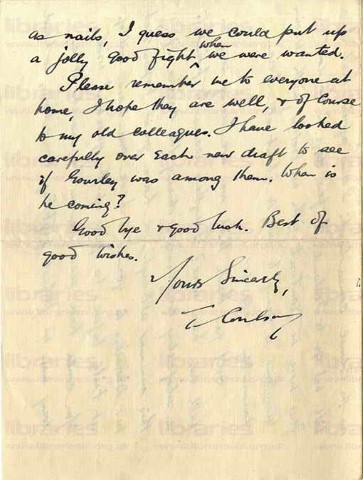 as nails, I guess we could put up
a jolly good fight when we were wanted.
Please remember me to everyone at
home, I hope they are well, & of course
to my old colleagues. I have looked
carefully over each new draft to see
if Gourley was among them. When is
he coming?
Good bye & good luck. Best of
good wishes.
Yours Sincerely,
T Coulson
libraries